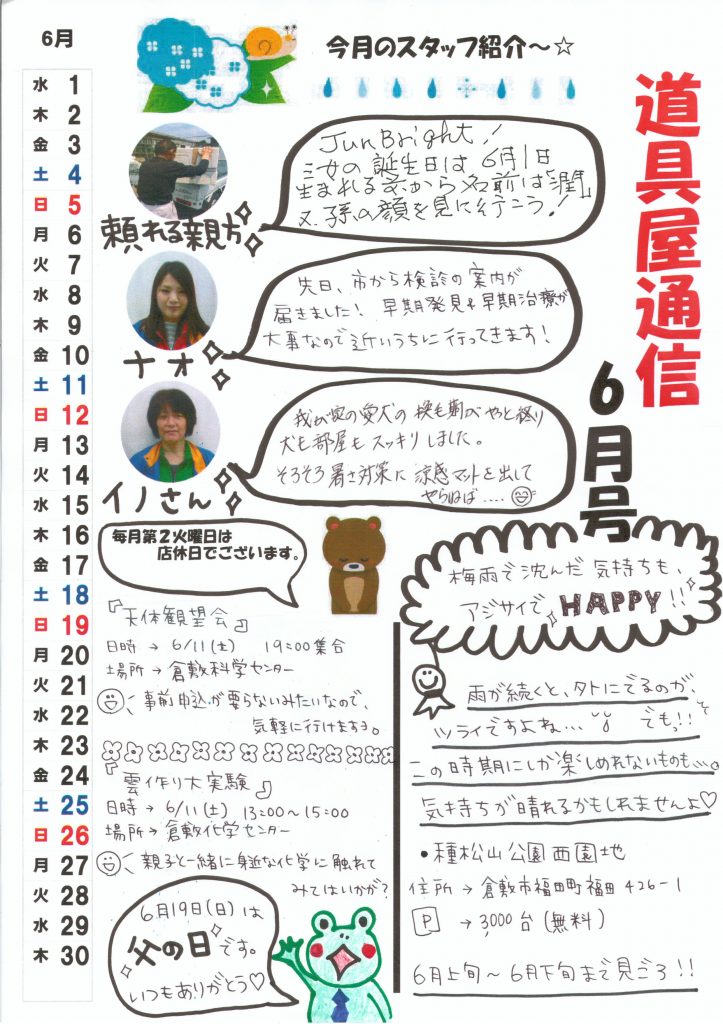 道具屋通信
6月号
6月
水 1
木 2
金 3
土 4
日 5
月 6
火 7
水 8
木 9
金 10
土 11
日 12
月 13
火 14
水 15
木 16
金 17
土 18
日 19
月 20
火 21
水 22
木 23
金 24
土 25
日 26
月 27
火 28
水 29
木 30
今月のスタッフ紹介〜☆
JunBright!
三女の誕生日は6月1日
生まれる前から名前は「潤」
又、孫の顔を見に行こう!
頼れる親方
先日、市から検診の案内が
届きました! 早期発見&早期治療が
大事なので近いうちに行ってきます!
ナオ
我が家の愛犬の換毛期がやっと終り
犬も部屋もスッキリしました。
そろそろ暑さ対策に涼感マットを出して
やらねば....
イノさん
毎月第2火曜日は
店休日でございます。
『天体観望会』
日時 → 6/11(土) 19:00集合
場所 → 倉敷科学センター
事前申込が要らないみたいなので、
気軽に行けますョ。
『雲作り大実験』
日時 → 6/11(土) 13:00〜15:00
場所 → 倉敷化学センター
親子と一緒に身近な化学に触れて
みてはいかが?
6月19日(日)は
父の日です。
いつもありがとう♡
梅雨で沈んだ気持ちも、
アジサイでHAPPY!!
雨が続くと、外にでるのが、
ツライですよね... でもっ!!
この時期にしか楽しめないものも...
気持ちが晴れるかもしれませんよ♡
•種松山公園西園地
住所 → 倉敷市福田町福田426-1
P → 3,000台(無料)
6月上旬〜6月下旬まで見ごろ!!